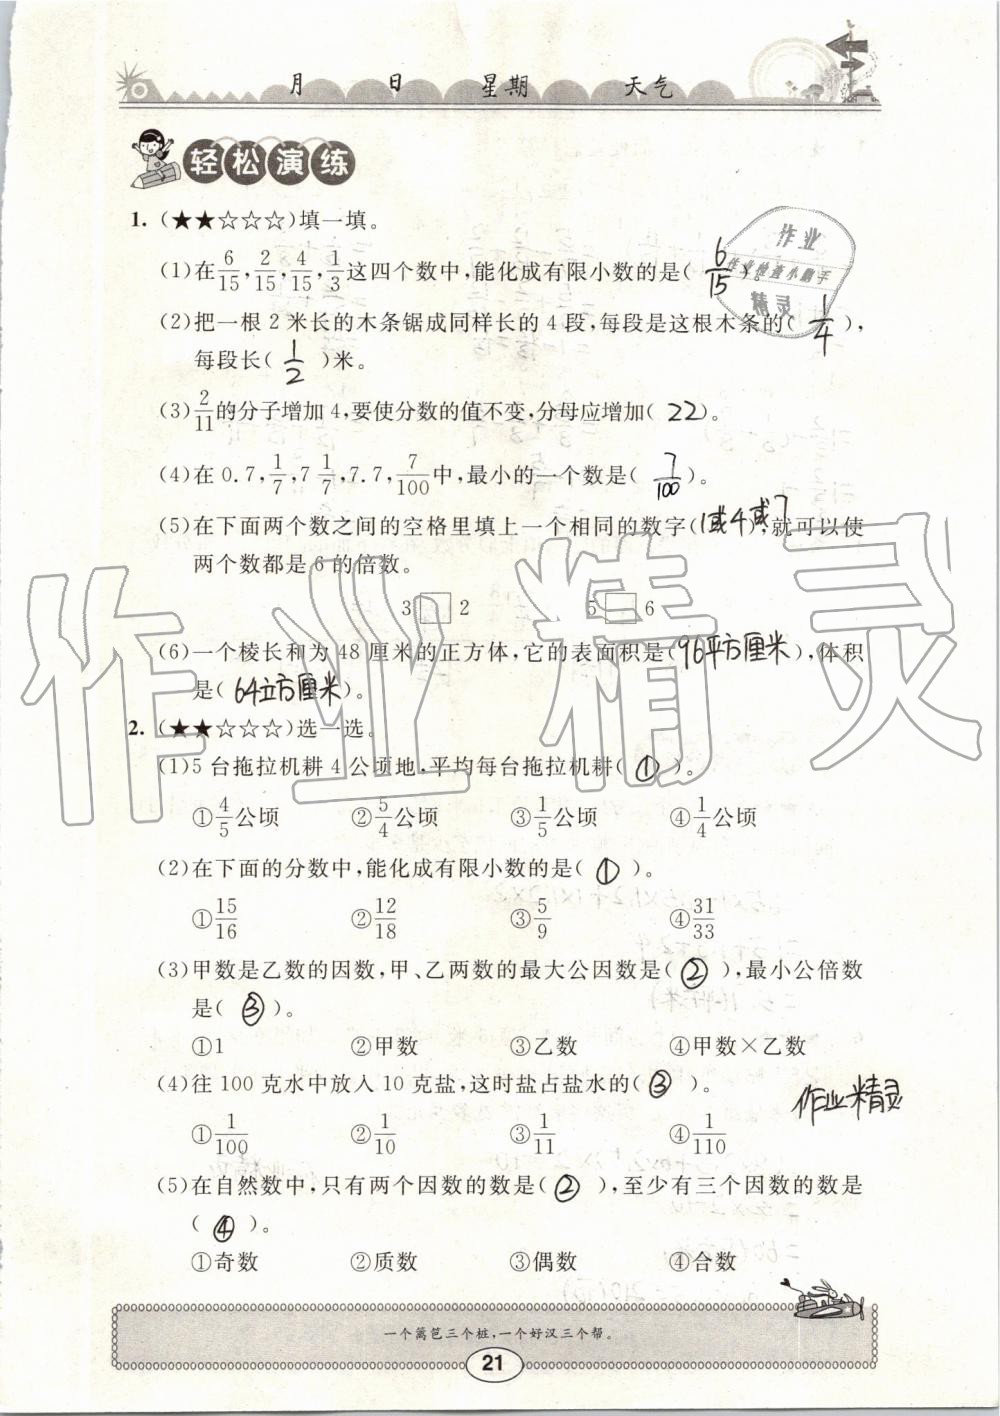 月 日 星期 天气
轻松演练
1. (★★☆☆☆)填一填。
(1)在6/15,2/15,4/15,1/3这四个数中,能化成有限小数的是( 6/15 )。
作业
作业检查小助手
精灵
(2)把一根2米长的木条锯成同样长的4段,每段是这根木条的( 1/4 ),
每段长( 1/2 )米。
(3)2/11的分子增加4,要使分数的值不变,分母应增加( 22 )。
(4)在0.7,1/7,7 1/7,7.7,7/100中,最小的一个数是( 7/100 )。
(5)在下面两个数之间的空格里填上一个相同的数字(1或4或7),就可以使
两个数都是6的倍数。
3□2 5□6
(6)一个棱长和为48厘米的正方体,它的表面积是(96平方厘米),体积
是(64立方厘米)。
作业精灵
2. (★★☆☆☆)选一选。
(1)5台拖拉机耕4公顷地,平均每台拖拉机耕( ① )。
①4/5公顷 ②5/4公顷 ③1/5公顷 ④1/4公顷
(2)在下面的分数中,能化成有限小数的是( ① )。
①15/16 ②12/18 ③5/9 ④31/33
(3)甲数是乙数的因数,甲、乙两数的最大公因数是( ② ),最小公倍数
是( ③ )。
①1 ②甲数 ③乙数 ④甲数×乙数
(4)往100克水中放入10克盐,这时盐占盐水的( ③ )。
作业精灵
①1/100 ②1/10 ③1/11 ④1/110
(5)在自然数中,只有两个因数的数是( ② ),至少有三个因数的数是
( ④ )。
①奇数 ②质数 ③偶数 ④合数
一个篱笆三个桩,一个好汉三个帮。
21